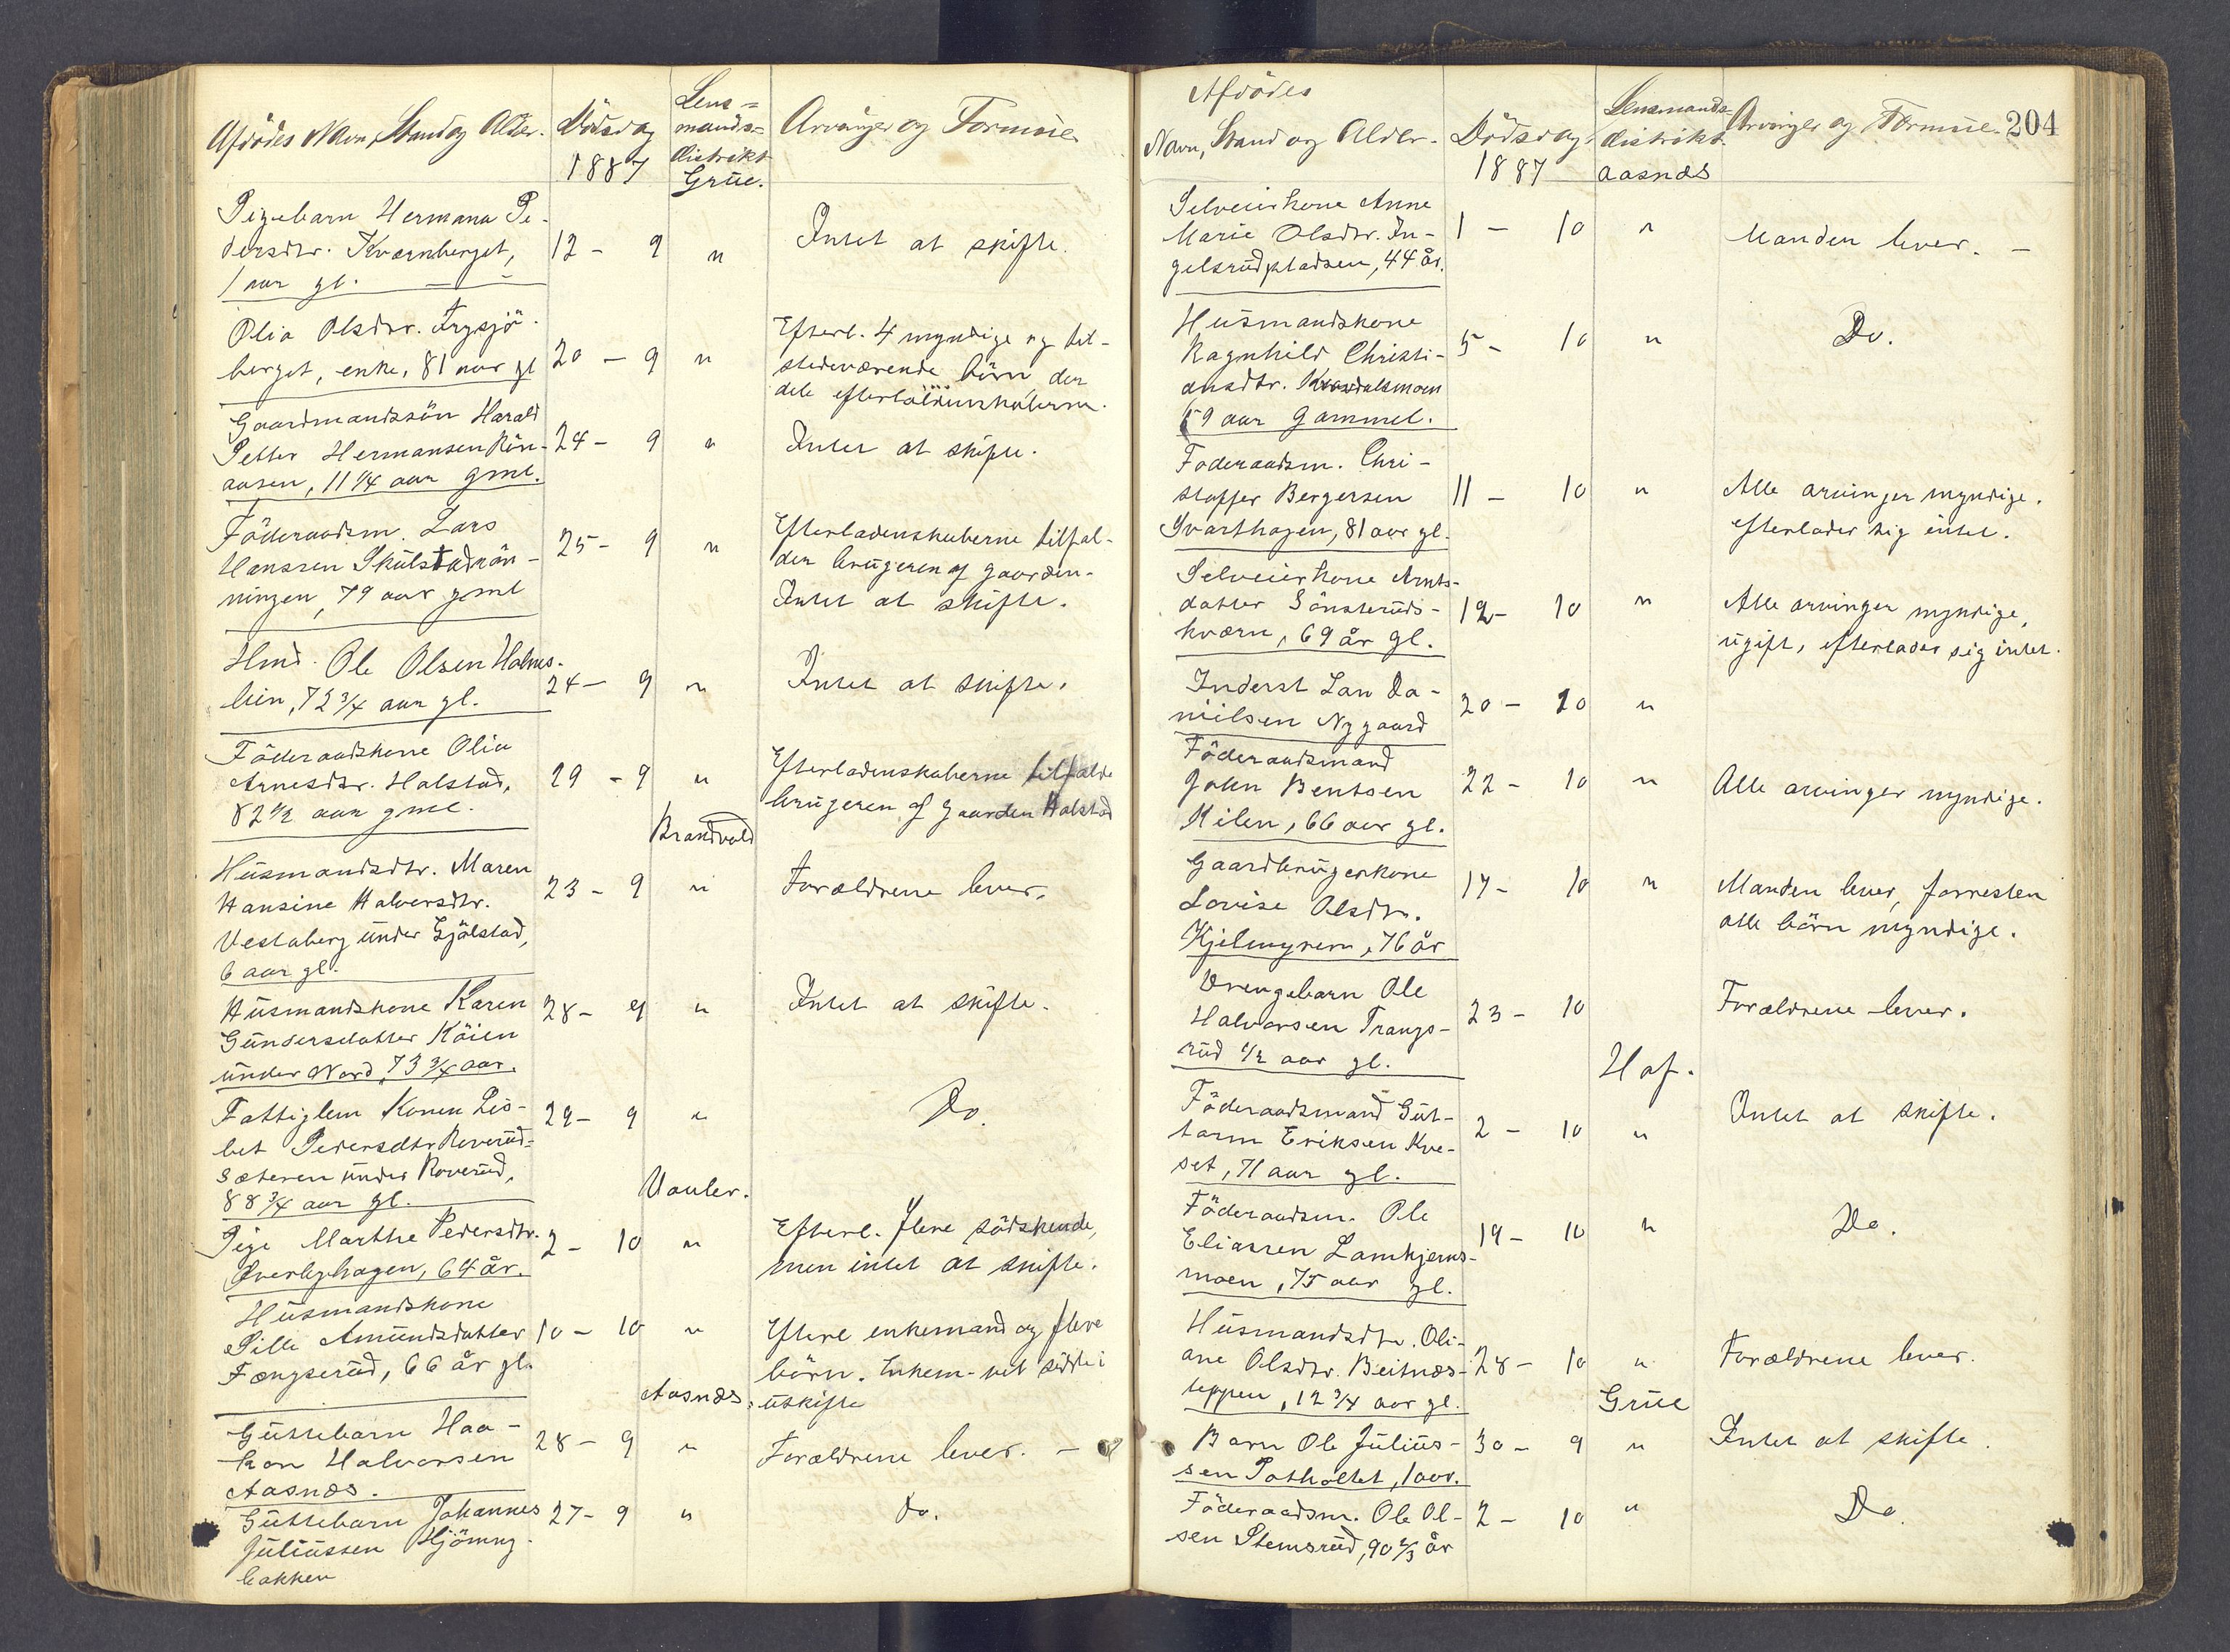 Afdödes Navn, Stand og Alder.
Dödsdag
1887
Lens=
mands=
distrikt
Grue.
Arvinger og Formue
Pigebarn Hermana Pe-
dersdtr. Kvernberget,
1 aar gl.
12 - 9 "
Intet at skifte.
Olia Olsdtr. Frysjö-
berget, enke, 81 aar gl
20 - 9 "
Efterl. 4 myndige og til-
stedeværende börn, der
dele efterladenskaberne.
Gaardmandssön Harald
Petter Hermansen Rön-
aasen, 11 1/4 aar gml.
24 - 9 "
Intet at skifte.
Föderaadsm. Lars
Hanssen Skulstadrön-
ningen, 79 aar gml
25 - 9 "
Efterladenskaberne tilfal-
der brugeren af gaarden.
Intet at skifte.
Hmd. Ole Olsen Holms-
lien, 72 3/4 aar gl.
24 - 9 "
Intet at skifte.
Föderaadskone Olia
Arnesdtr. Halstad,
82 1/2 aar gml.
29 - 9 "
Efterladenskaberne tilfalde
brugeren af gaarden Halstad
Brandvold
Husmandsdtr. Maren
Hansine Halversdtr.
Vestaberg under Gjölstad,
6 aar gl.
23 - 9 "
Forældrene lever.
Husmandskone Karen
Gundersdatter Köien
under Nord, 73 3/4 aar.
28 - 9 "
Intet at skifte.
Fattiglem Konen Lis-
bet Pedersdtr. Roverud-
sæteren under Roverud,
88 3/4 aar gl.
29 - 9 "
Do.
Vaaler.
Pige Marthe Pedersdtr.
Overbyhagen, 64 år.
2 - 10 "
Efterl. flere södskende,
men intet at skifte.
Husmandskone
Pille Amundsdatter
Fangserud, 66 år gl.
10 - 10 "
Efterl enkemand og flere
börn. Enkem- vil sidde i
uskifte
Aasnæs.
Guttebarn Haa-
kon Halvorsen
Aasnæs.
28 - 9 "
Forældrene lever. -
Guttebarn Johannes
Juliussen Hjömyg-
bakken
27 - 9 "
Do.
204
Afdödes
Navn, Stand og Alder.
Dödsdag
1887
Lensmands=
distrikt.
Aasnæs
Arvinger og Formue.
Selveierkone Anne
Marie Olsdtr. In-
gelsrudpladsen, 44 år.
1 - 10 "
Manden lever. -
Husmandskone
Ragnhild Christi-
ansdtr.
59 aar gammel.
5 - 10 "
Do.
Foderaadsm. Chri-
stoffer Bergersen
Svarthagen, 81 aar gl.
11 - 10 "
Alle arvinger myndige.
efterlader sig intet.
Selveierkone Arnts-
datter Sönsteruds-
kværn, 69 år gl.
12 - 10 "
Alle arvinger myndige,
ugift, efterlader sig intet.
Inderst Lan Da-
nielsen Nygaard
20 - 10 "
Föderaadsmand
John Bentsen
Kilen, 66 aar gl.
22 - 10 "
Alle arvinger myndige.
Gaardbrugerkone
Lovise Olsdtr.
Kjelmyren, 76 år
17 - 10 "
Manden lever, forresten
alle börn myndige.
Drengebarn Ole
Halvorsen Trangs-
rud 1/2 aar gl.
23 - 10
Forældrene lever.
Hof.
Föderaadsmand Gut-
torm Eriksen Kve-
set, 71 aar gl.
2 - 10 "
Intet at skifte.
Föderaadsm. Ole
Eliassen Lamkjerns-
moen, 75 aar gl.
19 - 10 "
Do.
Husmandsdtr. Oli-
ane Olsdtr. Beitnæs-
teppen, 12 3/4 aar gl.
28 - 10 "
Forældrene lever.
Grue
Barn Ole Julius-
sen Potholtet, 1 aar.
30 - 9 "
Intet at skifte.
Föderaadsm. Ole Ol-
sen Stemsrud, 90 2/3 år
2 - 10 "
Do.